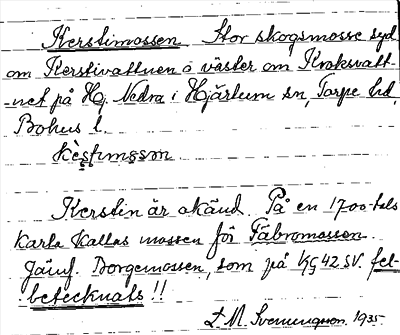 Kerstimossen. Stor skogsmosse syd
om Kerstivattnen o väster om Kroksvatt-
-net på Hj. Nedra i Hjärtum sn, Torpe hd,
Bohus l.
Kerstin är okänd. På en 1700-tals
karta kallas mossen för Täbromossen.
Jämf. Dorgemossen, som på 1/4 G 42 SV. fel-
betecknats!!
L. M. Svenungsson. 1935.